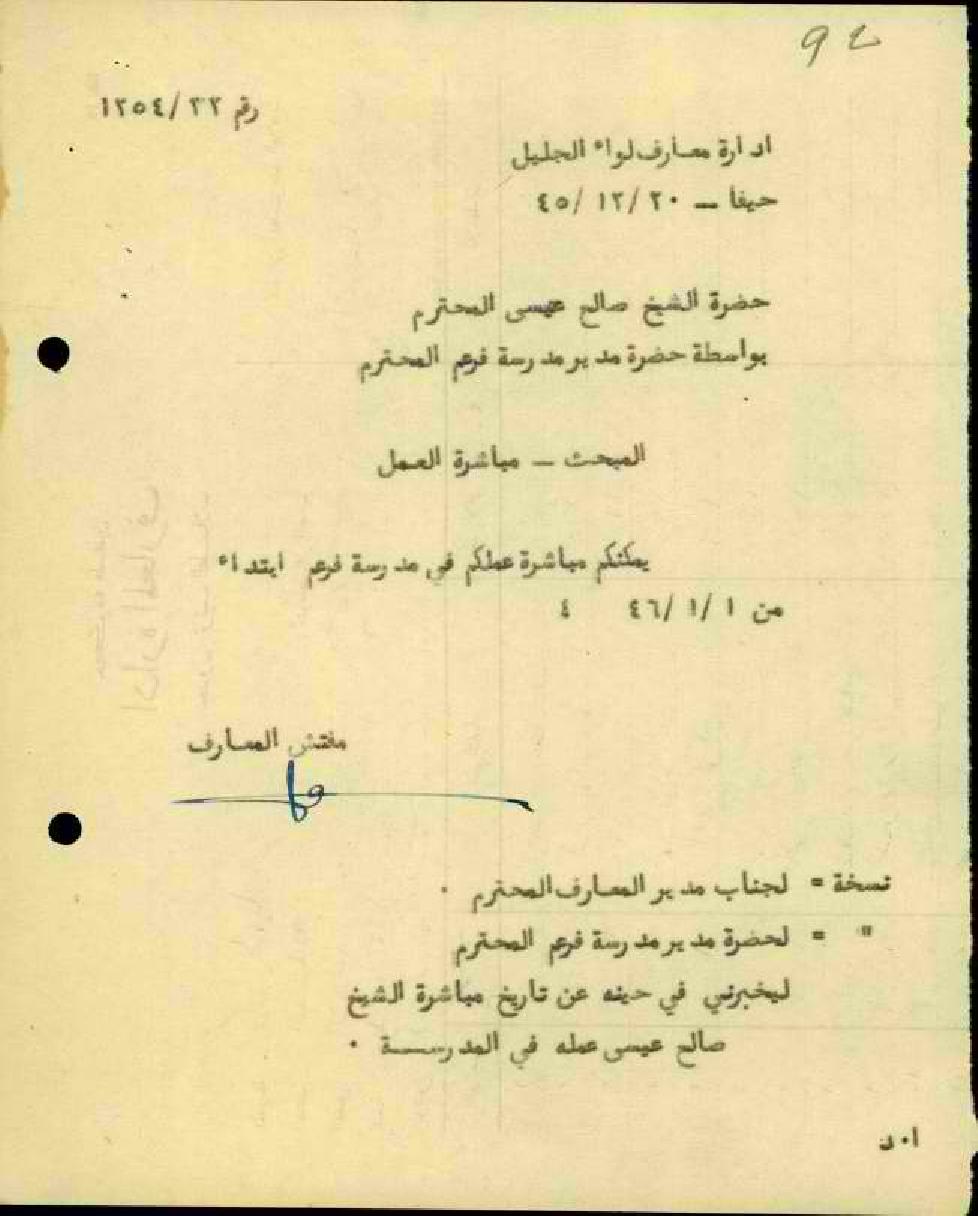 92
رقم ٢٢/ ١٢٥٤
ادارة معارف لواء الجليل
حيفا — ٢٠ /١٢ /٤٥
حضرة الشيخ صالح عيسى المحترم
بواسطة حضرة مدير مدرسة فرعم المحترم
المبحث — مباشرة العمل
يمكنكم مباشرة عملكم في مدرسة فرعم ابتداء
من ١ /١ /٤٦ ٤
مفتش المعارف
نسخة = لجناب مدير المعارف المحترم ٠
" = لحضرة مدير مدرسة فرعم المحترم
ليخبرني في حينه عن تاريخ مباشرة الشيخ
صالح عيسى عمله في المدرســـة ٠